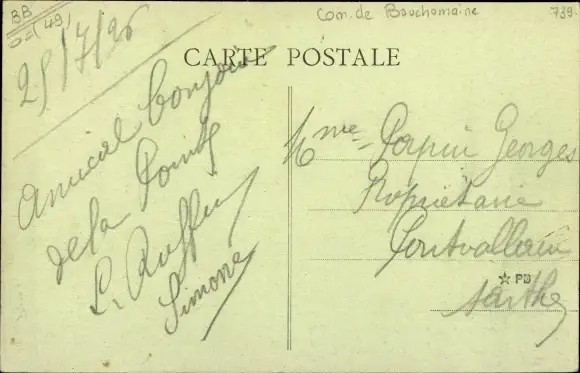 BB
Com. de Bouchemaine
739
25/7/26
CARTE POSTALE
Amical bonjour
de la Pointe
L. Ruffin
Simone
Mme Papin Georges
Propriétaire
Pontvallain
★ PB
Sarthe